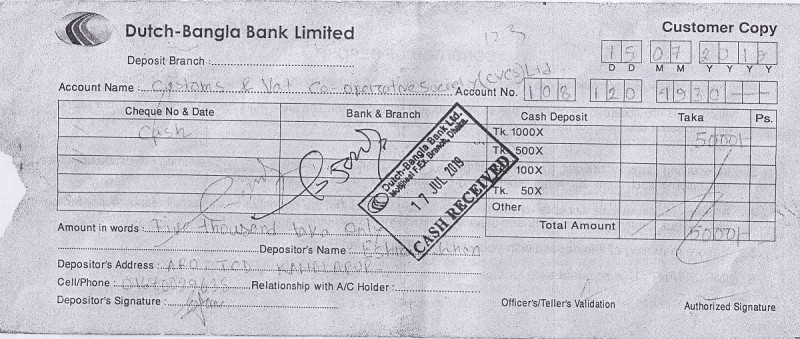 Dutch-Bangla Bank Limited
Customer Copy
Deposit Branch :
15 07 201
D D M M Y Y Y Y
Account Name : Customs & Vat Co-operative Society (CVCS) Ltd
Account No. 108 120 4930
Cheque No & Date Bank & Branch Cash Deposit Taka Ps.
Cash
Tk. 1000X 5000/-
Tk. 500X
100X
Tk. 50X
Other
Total Amount 5000/-
Dutch-Bangla Bank Ltd.
Motijheel F.Ex. Branch, Dhaka.
17 JUL 2019
CASH RECEIVED
Amount in words : Five thousand taka only
Depositor's Name :
Depositor's Address : ARO, ICD KAMALAPUR
Cell/Phone : Relationship with A/C Holder :
Depositor's Signature :
Officer's/Teller's Validation
Authorized Signature